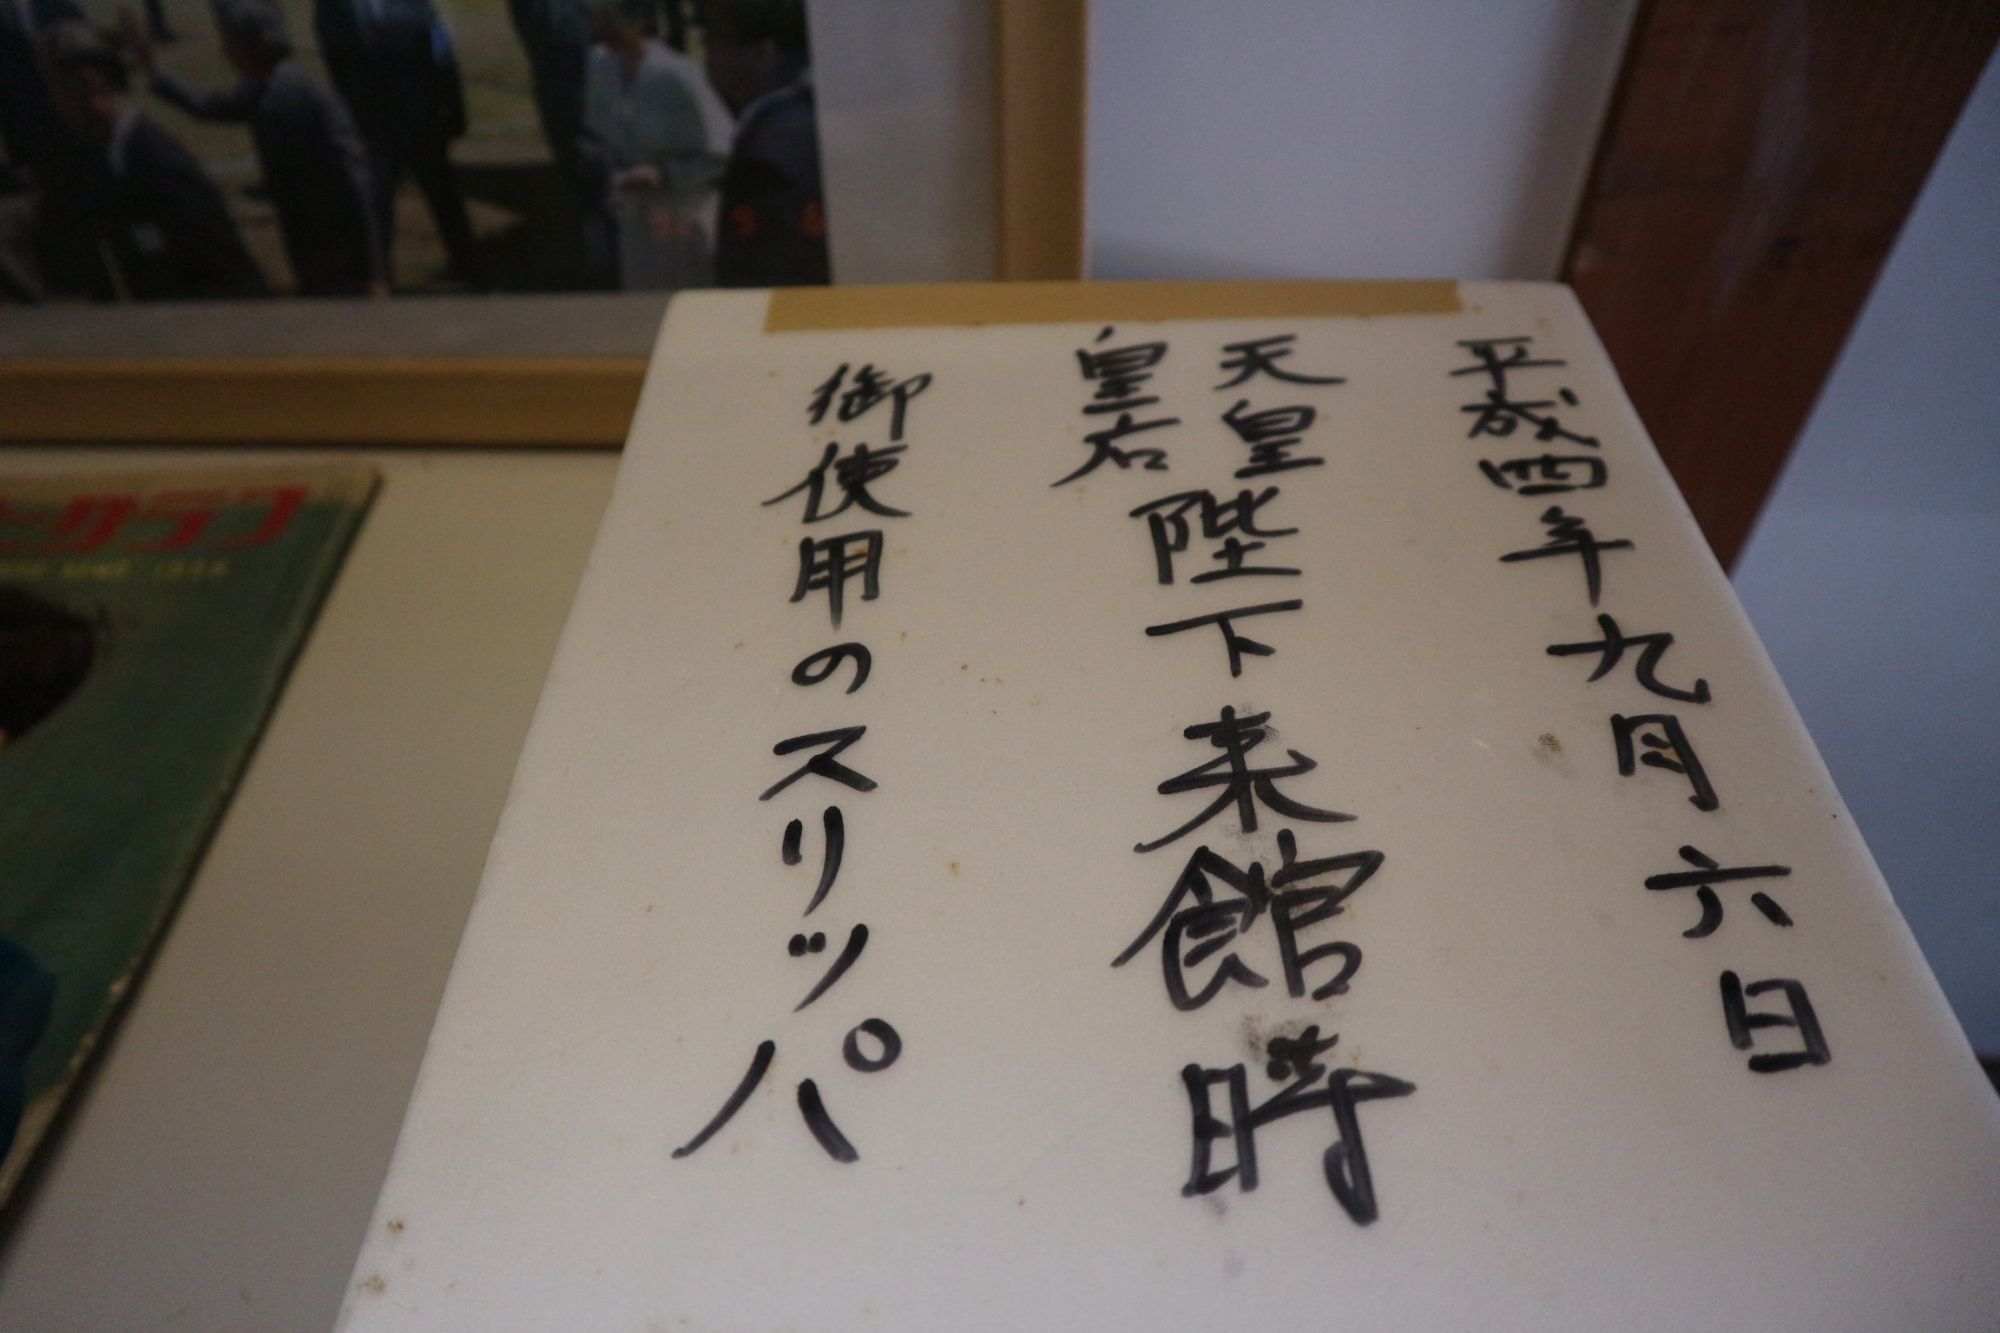 平成四年九月六日
天皇
皇后
陛下来館時
御使用のスリッパ